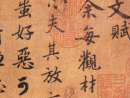 文賦
余每觀材
夫其放
蚩好惡可